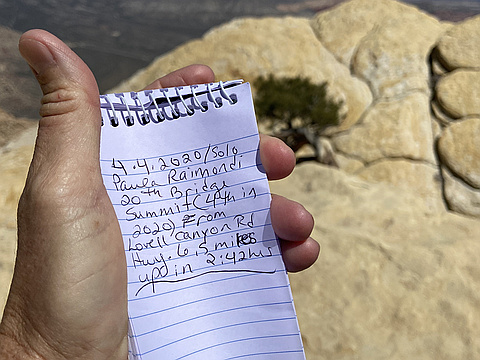 4.4.2020/Solo
Paula Raimondi
20th Bridge
Summit (4th in
2020) From
Lovell Canyon Rd
Hwy. 6.5 miles
up in 2:42hrs